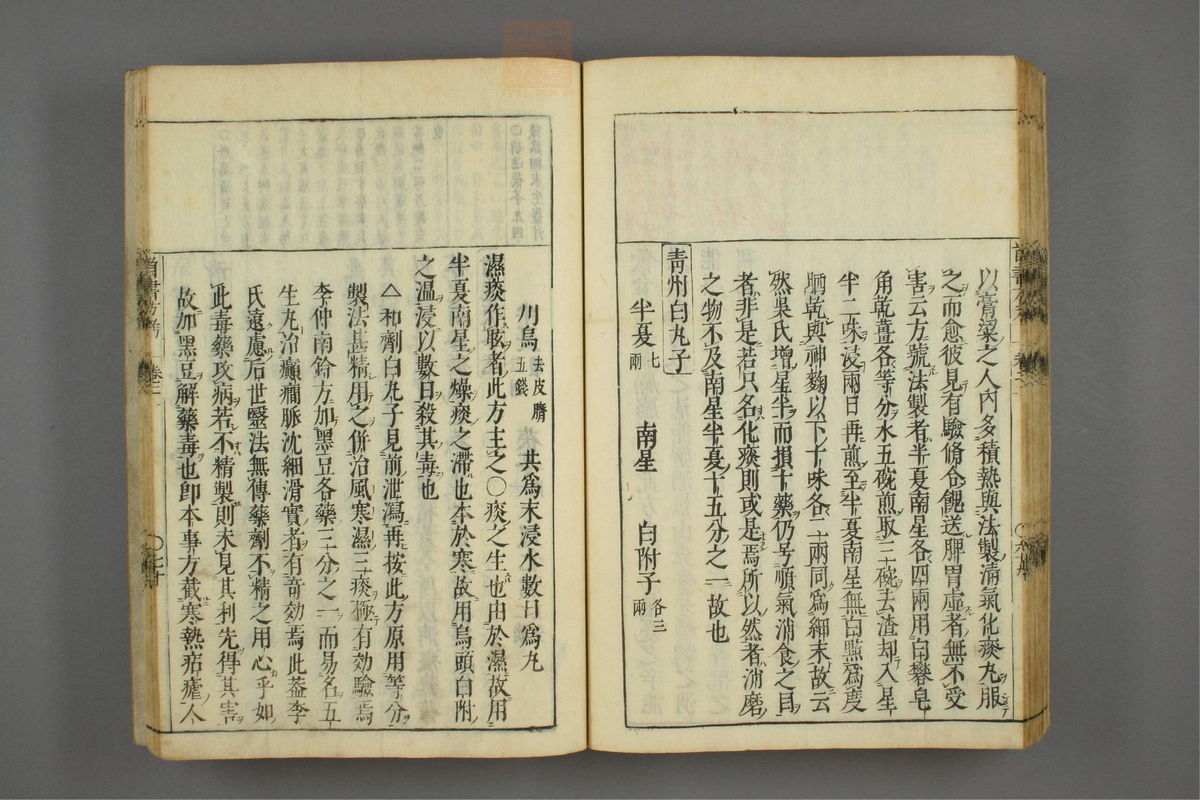 以膏粱之人內多積熱與法製清氣化痰丸服
之而愈彼見有驗脩合餽送脾胃虛者無不受
害云方號法製者半夏南星各四兩用白礬皂
角乾薑各等分水五碗煎取三碗去渣却入星
半二味浸兩日再煎至半夏南星無白點爲度
晒乾與神麴以下十味各二兩同爲細末故云
然吳氏增星半而損十藥仍号順氣消食之目
者非是若只名化痰則或是焉所以然者消磨
之物不及南星半夏十五分之一故也
青州白丸子
半夏七兩 南星 白附子各三兩
川烏去皮臍五錢 共爲末浸水數日爲丸
濕痰作眩者此方主之〇痰之生也由於濕故用
半夏南星之燥痰之滯也本於寒故用烏頭白附
之溫浸以數日殺其毒也
△和劑白丸子見前泄瀉再按此方原用等分
製法甚精用之併治風寒濕三痰極有効驗焉
李仲南鈴方加黑豆各藥三分之一而易名五
生丸治癲癇脈沈細滑實者有奇効焉此葢李
氏遠慮后世毉法無傳藥劑不精之用心乎如
此毒藥攻病若不精製則未見其利先得其害
故加黑豆解藥毒也即本事方截寒熱痁瘧人
卷三
〇七十